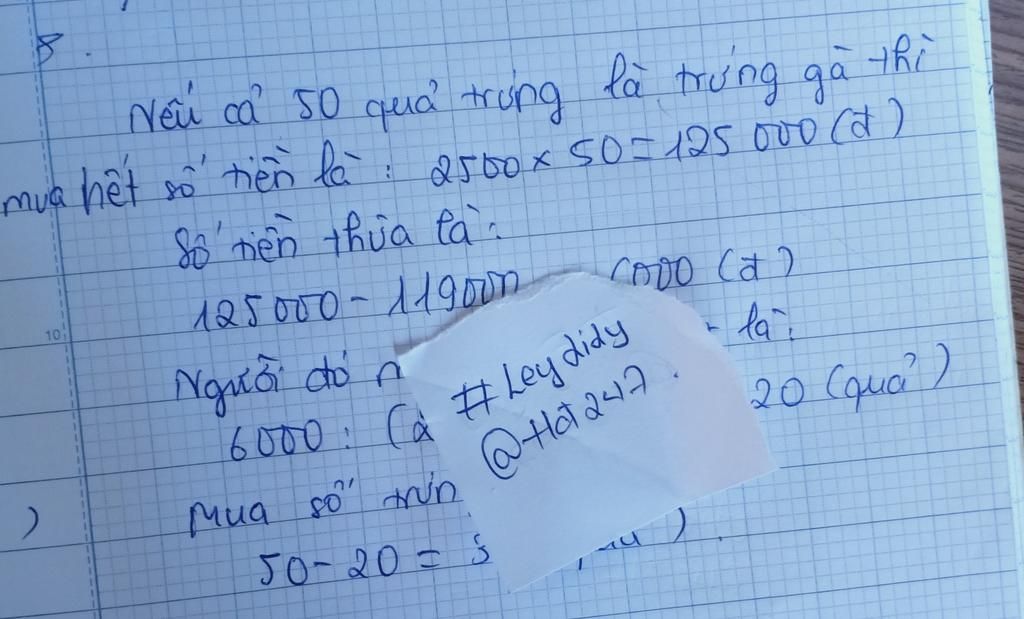 8.
Nếu cả 50 quả trứng là trứng gà thì
mua hết số tiền là : 2500 x 50 = 125 000 (đ)
Số tiền thừa là :
125000 - 119000 000 (đ)
Người đó là :
6000 : 20 (quả)
) Mua số
50 - 20 =
#Leydidy
@Hđ247